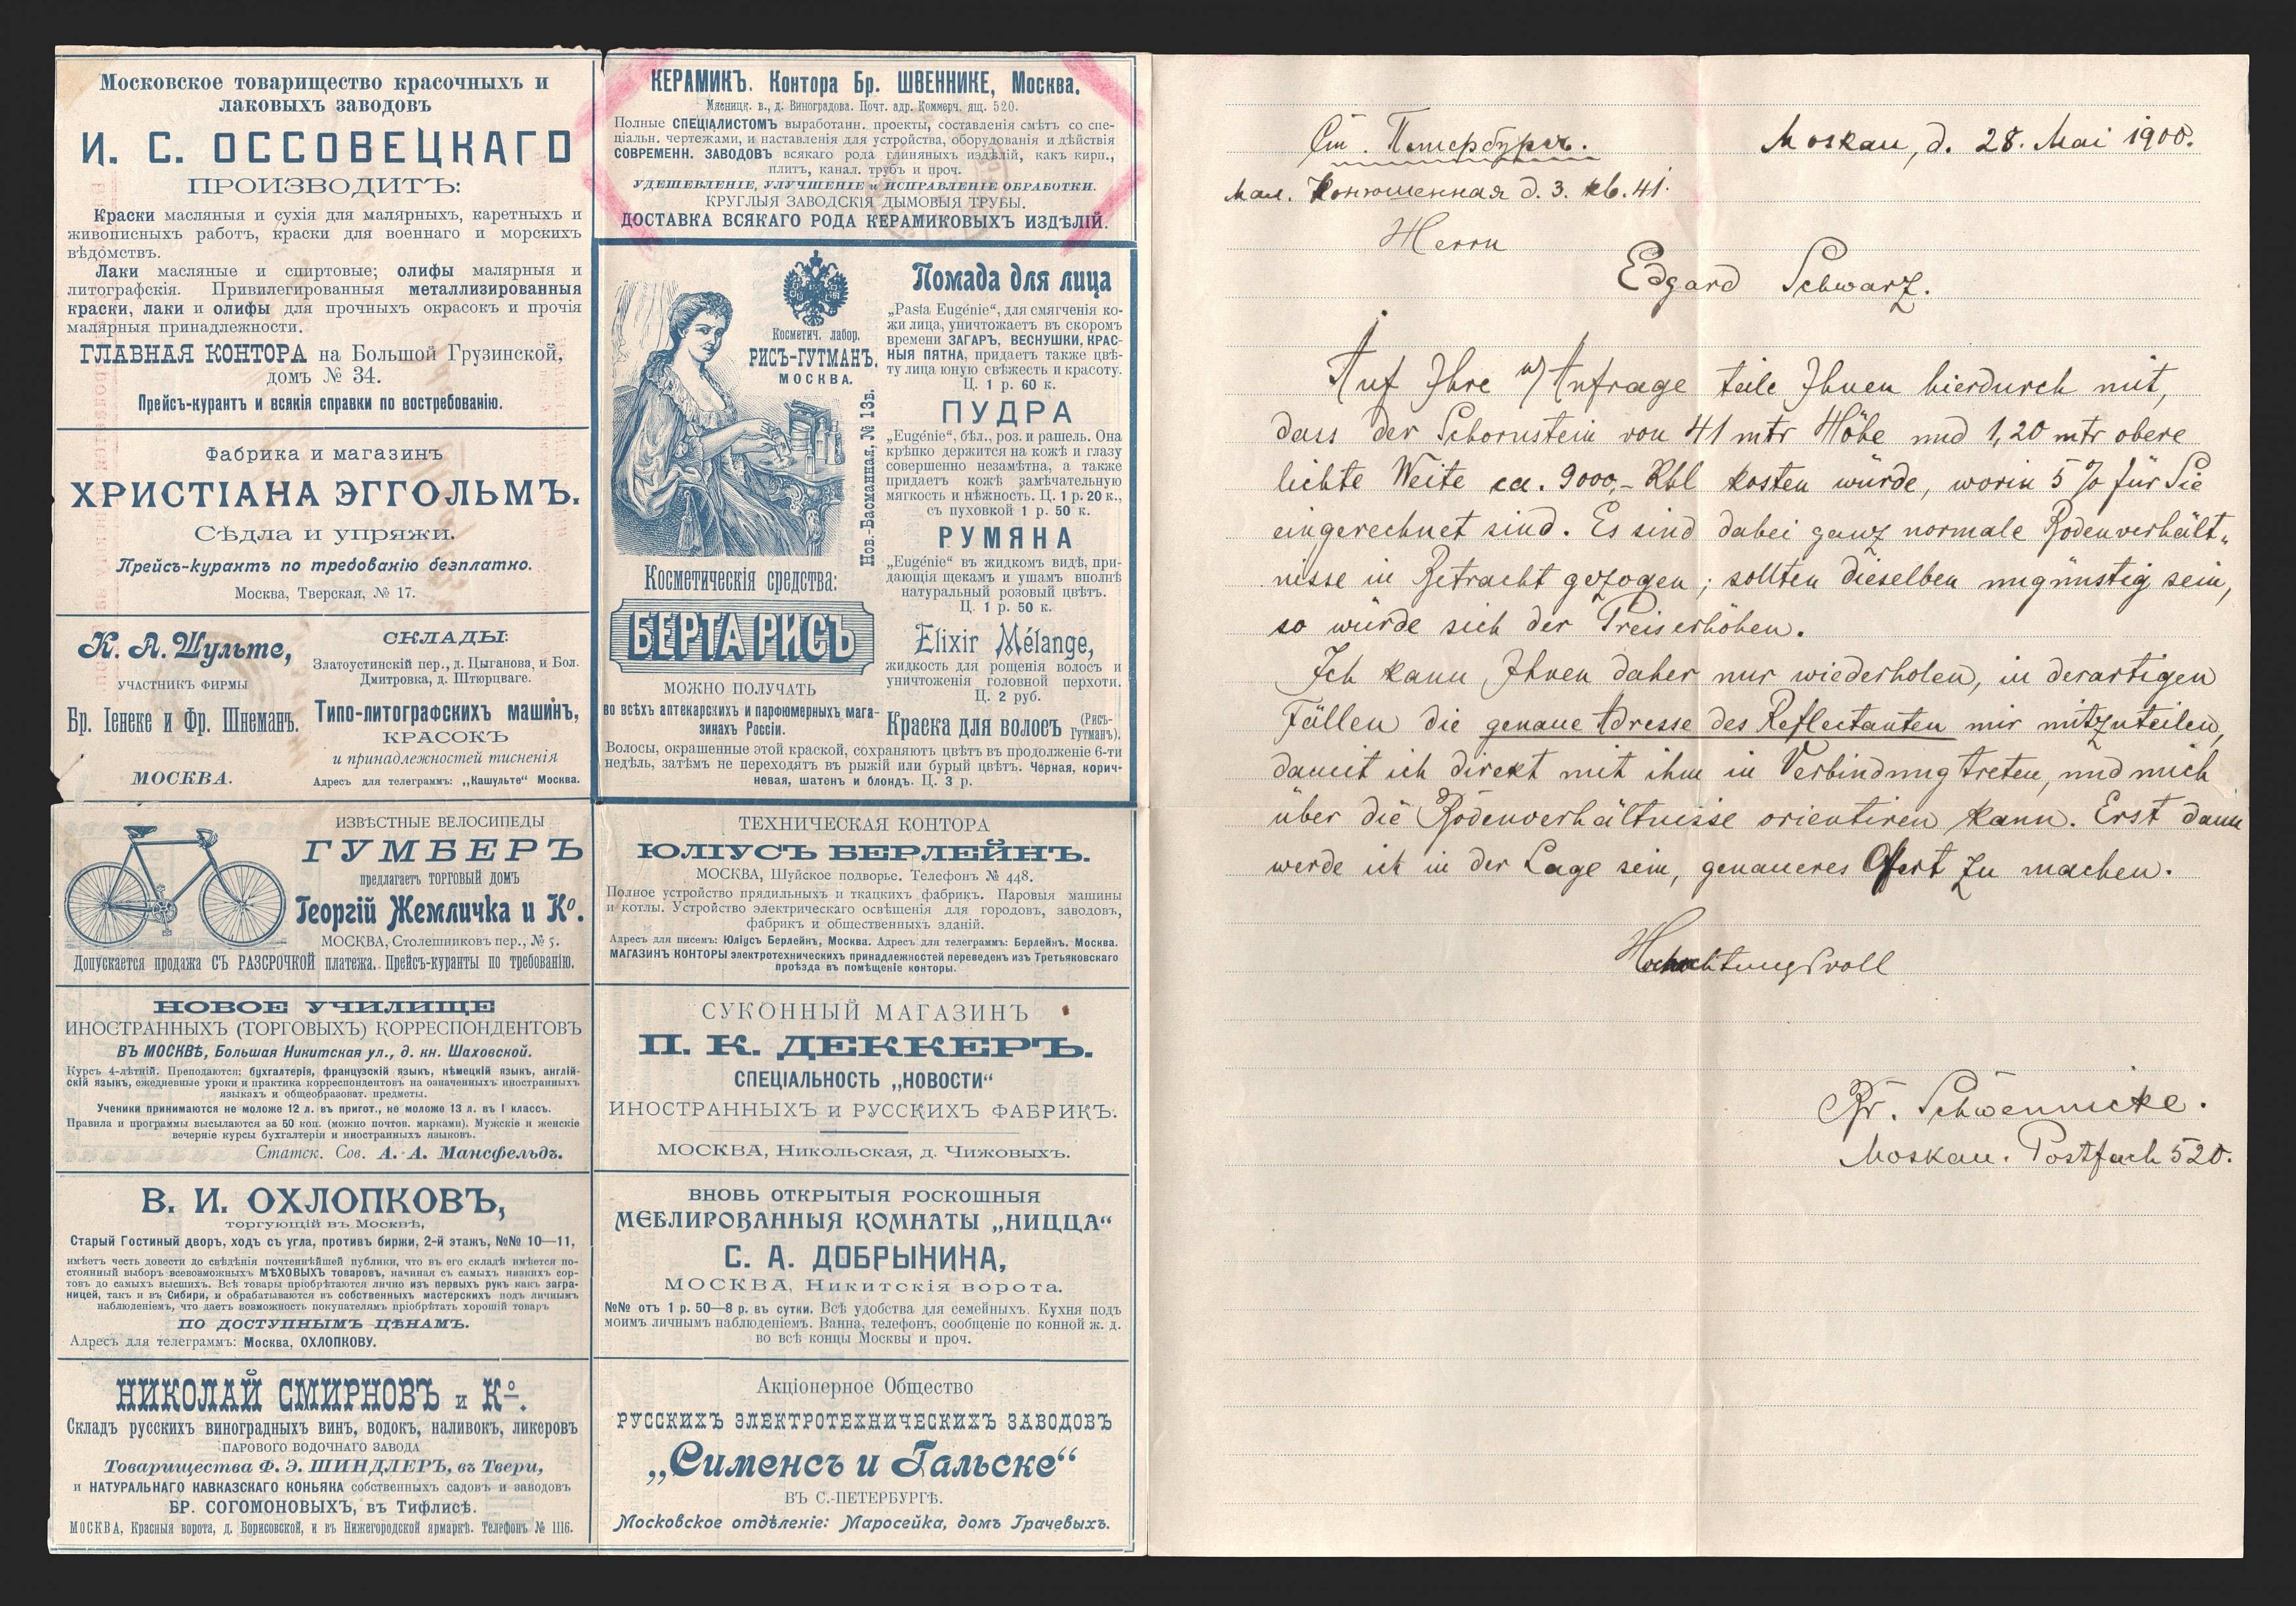 Московское товарищество красочныхъ и
лаковыхъ заводовъ
И. С. ОССОВЕЦКАГО
ПРОИЗВОДИТЪ:
Краски масляныя и сухія для малярныхъ, каретныхъ и
живописныхъ работъ, краски для военнаго и морскихъ
вѣдомствъ.
Лаки масляные и спиртовые; олифы малярныя и
литографскія. Привилегированныя металлизированныя
краски, лаки и олифы для прочныхъ окрасокъ и прочія
малярныя принадлежности.
ГЛАВНАЯ КОНТОРА на Большой Грузинской,
домъ № 34.
Прейсъ-курантъ и всякія справки по востребованію.
Фабрика и магазинъ
ХРИСТІАНА ЭГГОЛЬМЪ.
Сѣдла и упряжи.
Прейсъ-курантъ по требованію безплатно.
Москва, Тверская, № 17.
К. А. Шульте,
УЧАСТНИКЪ ФИРМЫ
Бр. Іенеке и Фр. Шнеманъ.
МОСКВА.
СКЛАДЫ:
Златоустинскій пер., д. Цыганова, и Бол.
Дмитровка, д. Штюрцваге.
Типо-литографскихъ машинъ,
КРАСОКЪ
и принадлежностей тисненія
Адресъ для телеграммъ: „Кашульте“ Москва.
ИЗВѢСТНЫЕ ВЕЛОСИПЕДЫ
ГУМБЕРЪ
предлагаетъ ТОРГОВЫЙ ДОМЪ
Георгій Жемличка и Ко.
МОСКВА, Столешниковъ пер., № 5.
Допускается продажа СЪ РАЗСРОЧКОЙ платежа. Прейсъ-куранты по требованію.
НОВОЕ УЧИЛИЩЕ
ИНОСТРАННЫХЪ (ТОРГОВЫХЪ) КОРРЕСПОНДЕНТОВЪ
ВЪ МОСКВѢ, Большая Никитская ул., д. кн. Шаховской.
Курсъ 4-лѣтній. Преподаются: бухгалтерія, французскій языкъ, нѣмецкій языкъ, англій-
скій языкъ, ежедневные уроки и практика корреспондентовъ на означенныхъ иностранныхъ
языкахъ и общеобразоват. предметы.
Ученики принимаются не моложе 12 л. въ пригот., не моложе 13 л. въ I классъ.
Правила и программы высылаются за 50 коп. (можно почтов. марками). Мужскіе и женскіе
вечерніе курсы бухгалтеріи и иностранныхъ языковъ.
Статск. Сов. А. А. Мансфельдъ.
В. И. ОХЛОПКОВЪ,
торгующій въ Москвѣ,
Старый Гостиный дворъ, ходъ съ угла, противъ биржи, 2-й этажъ, №№ 10—11,
имѣетъ честь довести до свѣдѣнія почтеннѣйшей публики, что въ его складѣ имѣется по-
стоянный выборъ всевозможныхъ МѢХОВЫХЪ товаровъ, начиная съ самыхъ низкихъ сор-
товъ до самыхъ высшихъ. Всѣ товары пріобрѣтаются лично изъ первыхъ рукъ какъ загра-
ницей, такъ и въ Сибири, и обрабатываются въ собственныхъ мастерскихъ подъ личнымъ
наблюденіемъ, что даетъ возможность покупателямъ пріобрѣтать хорошій товаръ
ПО ДОСТУПНЫМЪ ЦѢНАМЪ.
Адресъ для телеграммъ: Москва, ОХЛОПКОВУ.
НИКОЛАЙ СМИРНОВЪ и Ко.
Складъ русскихъ виноградныхъ винъ, водокъ, наливокъ, ликеровъ
ПАРОВОГО ВОДОЧНАГО ЗАВОДА
Товарищества Ф. Э. ШИНДЛЕРЪ, въ Твери,
и НАТУРАЛЬНАГО КАВКАЗСКАГО КОНЬЯКА собственныхъ садовъ и заводовъ
БР. СОГОМОНОВЫХЪ, въ Тифлисѣ.
МОСКВА, Красныя ворота, д. Борисовской, и въ Нижегородской ярмаркѣ. Телефонъ № 1116.
КЕРАМИКЪ. Контора Бр. ШВЕННИКЕ, Москва.
Мясницк. в., д. Виноградова. Почт. адр. Коммерч. ящ. 520.
Полные СПЕЦІАЛИСТОМЪ выработанн. проекты, составленія смѣтъ со спе-
ціальн. чертежами, и наставленія для устройства, оборудованія и дѣйствія
СОВРЕМЕНН. ЗАВОДОВЪ всякаго рода глиняныхъ издѣлій, какъ кирп.,
плитъ, канал. трубъ и проч.
УДЕШЕВЛЕНІЕ, УЛУЧШЕНІЕ и ИСПРАВЛЕНІЕ ОБРАБОТКИ.
КРУГЛЫЯ ЗАВОДСКІЯ ДЫМОВЫЯ ТРУБЫ.
ДОСТАВКА ВСЯКАГО РОДА КЕРАМИКОВЫХЪ ИЗДѢЛІЙ.
Косметич. лабор.
РИСЪ-ГУТМАНЪ,
МОСКВА.
Нов.-Басманная, № 13в.
Косметическія средства:
БЕРТА РИСЪ
МОЖНО ПОЛУЧАТЬ
во всѣхъ аптекарскихъ и парфюмерныхъ мага-
зинахъ Россіи.
Помада для лица
„Pasta Eugénie“, для смягченія ко-
жи лица, уничтожаетъ въ скоромъ
времени ЗАГАРЪ, ВЕСНУШКИ, КРАС-
НЫЯ ПЯТНА, придаетъ также цвѣ-
ту лица юную свѣжесть и красоту.
Ц. 1 р. 60 к.
ПУДРА
„Eugénie“, бѣл., роз. и рашель. Она
крѣпко держится на кожѣ и глазу
совершенно незамѣтна, а также
придаетъ кожѣ замѣчательную
мягкость и нѣжность. Ц. 1 р. 20 к.,
съ пуховкой 1 р. 50 к.
РУМЯНА
„Eugénie“ въ жидкомъ видѣ, при-
дающія щекамъ и ушамъ вполнѣ
натуральный розовый цвѣтъ.
Ц. 1 р. 50 к.
Elixir Mélange,
жидкость для рощенія волосъ и
уничтоженія головной перхоти.
Ц. 2 руб.
Краска для волосъ (Рисъ-Гутманъ).
Волосы, окрашенные этой краской, сохраняютъ цвѣтъ въ продолженіе 6-ти
недѣль, затѣмъ не переходятъ въ рыжій или бурый цвѣтъ. Черная, корич-
невая, шатенъ и блондъ. Ц. 3 р.
ТЕХНИЧЕСКАЯ КОНТОРА
ЮЛІУСЪ БЕРЛЕЙНЪ.
МОСКВА, Шуйское подворье. Телефонъ № 448.
Полное устройство прядильныхъ и ткацкихъ фабрикъ. Паровыя машины
и котлы. Устройство электрическаго освѣщенія для городовъ, заводовъ,
фабрикъ и общественныхъ зданій.
Адресъ для писемъ: Юліусъ Берлейнъ, Москва. Адресъ для телеграммъ: Берлейнъ. Москва.
МАГАЗИНЪ КОНТОРЫ электротехническихъ принадлежностей переведенъ изъ Третьяковскаго
проѣзда въ помѣщеніе конторы.
СУКОННЫЙ МАГАЗИНЪ
П. К. ДЕККЕРЪ.
СПЕЦІАЛЬНОСТЬ „НОВОСТИ“
ИНОСТРАННЫХЪ и РУССКИХЪ ФАБРИКЪ.
МОСКВА, Никольская, д. Чижовыхъ.
ВНОВЬ ОТКРЫТЫЯ РОСКОШНЫЯ
МЕБЛИРОВАННЫЯ КОМНАТЫ „НИЦЦА“
С. А. ДОБРЫНИНА,
МОСКВА, Никитскія ворота.
№№ отъ 1 р. 50—8 р. въ сутки. Всѣ удобства для семейныхъ. Кухня подъ
моимъ личнымъ наблюденіемъ. Ванна, телефонъ, сообщеніе по конной ж. д.
во всѣ концы Москвы и проч.
Акціонерное Общество
РУССКИХЪ ЭЛЕКТРОТЕХНИЧЕСКИХЪ ЗАВОДОВЪ
„Сименсъ и Гальске“
ВЪ С.-ПЕТЕРБУРГѢ.
Московское отдѣленіе: Маросейка, домъ Грачевыхъ.
Ст. Петербургъ.
Moskau, d. 28. Mai 1900.
Мал. Конюшенная д. 3. кв. 41.
Herrn
Edgard Schwarz.
Auf Ihre w/Anfrage teile Ihnen hierdurch mit,
dass der Schornstein von 41 mtr Höhe und 1,20 mtr obere
lichte Weite ca. 9000,- Rbl kosten würde, worin 5% für Sie
eingerechnet sind. Es sind dabei ganz normale Bodenverhält-
nisse in Betracht gezogen; sollten dieselben ungünstig sein,
so würde sich der Preis erhöhen.
Ich kann Ihnen daher nur wiederholen, in derartigen
Fällen die genaue Adresse des Reflectanten mir mitzuteilen,
damit ich direkt mit ihm in Verbindung treten, und mich
über die Bodenverhältnisse orientiren kann. Erst dann
werde ich in der Lage sein, genaueres Ofert zu machen.
Hochachtungsvoll
Br. Schwennicke.
Moskau. Postfach 520.